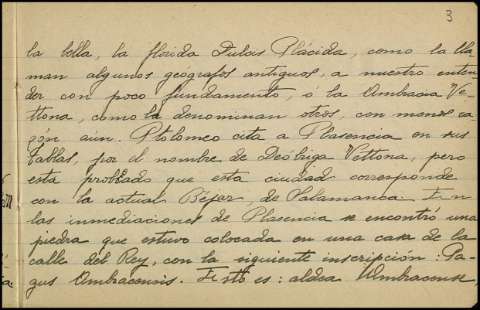 3
la bella, la florida Dulcis Plácida, como la lla-
man algunos geógrafos antiguos, a nuestro enten-
der con poco fundamento, ó la Ambracia Ve-
ttona, como la denominan otros, con menos ra-
zón aún. Ptolomeo cita a Plasencia en sus
tablas, por el nombre de Deóbriga Vettona, pero
está probado que esta ciudad corresponde
con la actual Béjar, de Salamanca. En
las inmediaciones de Plasencia se encontró una
piedra que estuvo colocada en una casa de la
calle del Rey, con la siguiente inscripción: Pa-
gus Ambracensis. Esto es: aldea Ambracense,